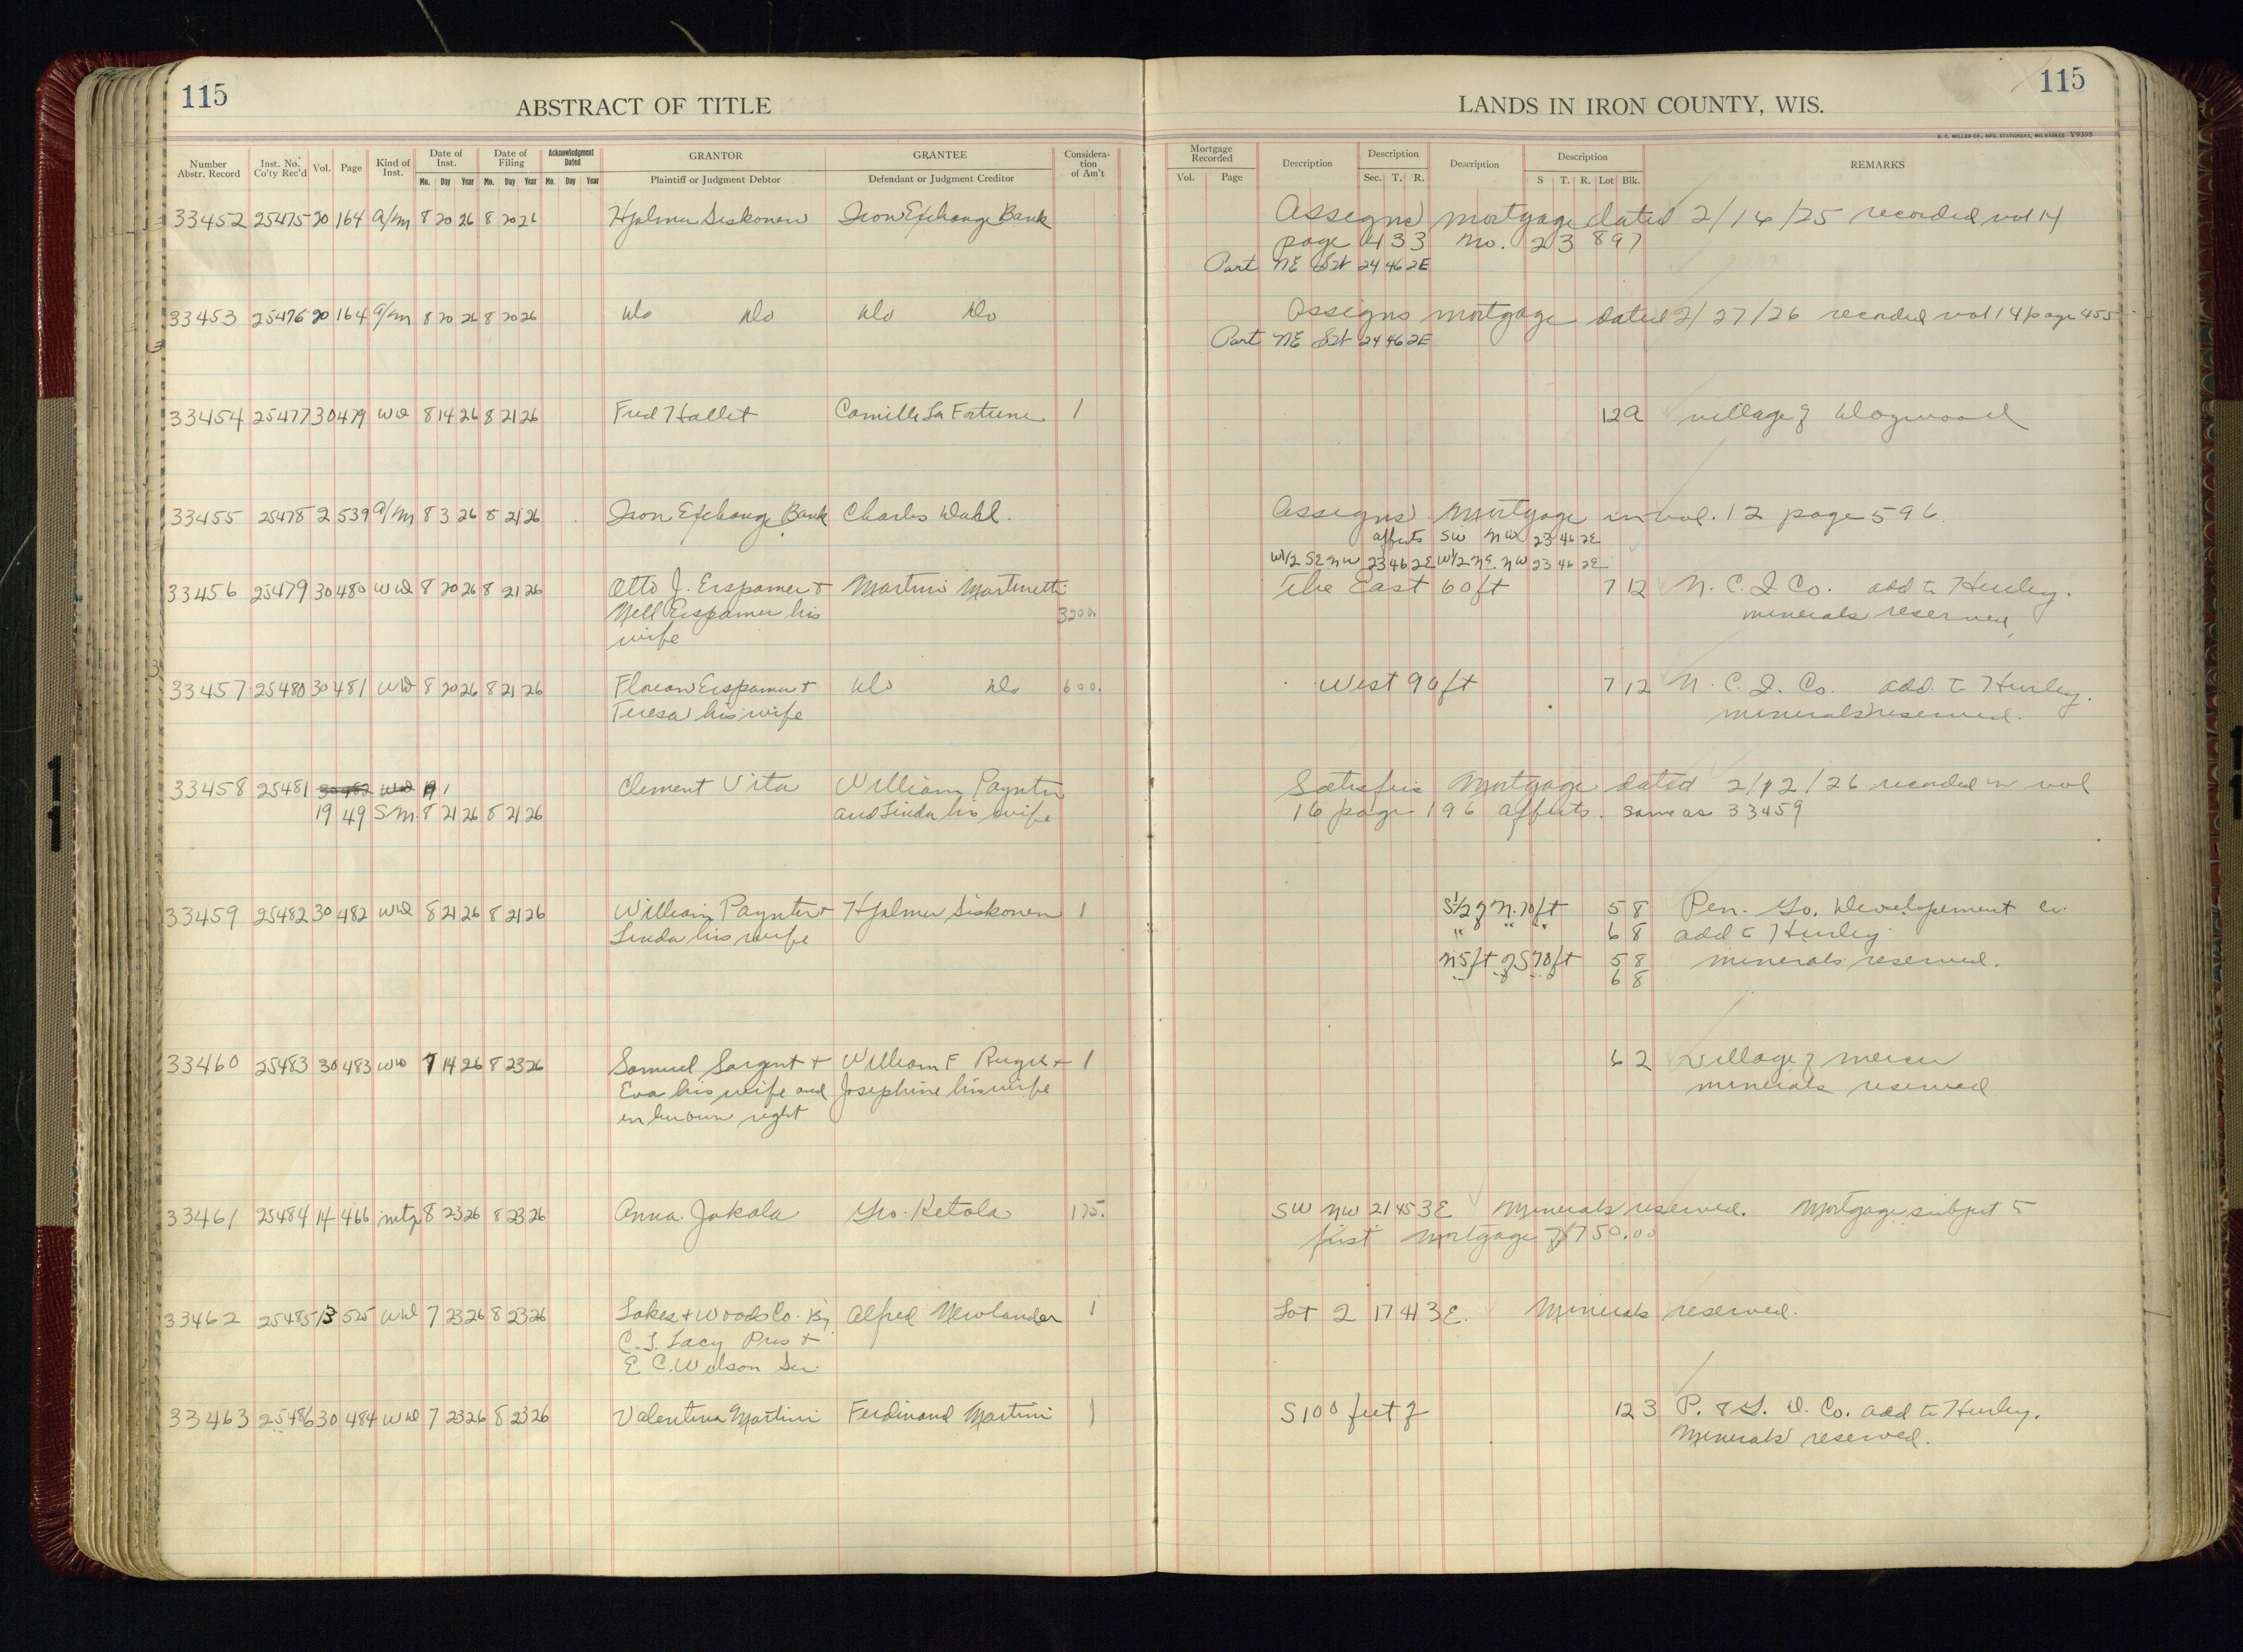 115
ABSTRACT OF TITLE
LANDS IN IRON COUNTY, WIS.
115
H. C. MILLER CO., MFG. STATIONERS, MILWAUKEE Y9398
Number Abstr. Record Inst. No. Co'ty Rec'd Vol. Page Kind of Inst. Date of Inst. Mo. Day Year Date of Filing Mo. Day Year Acknowledgment Dated Mo. Day Year GRANTOR Plaintiff or Judgment Debtor GRANTEE Defendant or Judgment Creditor Considera-tion of Am't Mortgage Recorded Vol. Page Description Description Sec. T. R. Description Description S T. R. Lot Blk. REMARKS
33452 25475 20 164 a/m 8 20 26 8 20 26 Hjalmer Siskonen Iron Exchange Bank Assigns mortgage dated 2/16/25 recorded vol 14
page 433 No. 23 897
Part NE SW 24 46 2E
33453 25476 20 164 a/m 8 20 26 8 20 26 Do Do Do Do Assigns mortgage dated 2/27/26 recorded vol 14 page 455
Part NE SW 24 46 2E
33454 25477 30 479 WD 8 14 26 8 21 26 Fred Hallet Camille La Fortune 1 12 9 village of Dogwood
33455 25478 2 539 a/m 8 3 26 8 21 26 Iron Exchange Bank Charles Dahl. Assigns Mortgage in vol. 12 page 596.
affects SW NW 23 46 2E
W1/2 SE NW 23 46 2E W1/2 NE NW 23 46 2E
33456 25479 30 480 WD 8 20 26 8 21 26 Otto J. Erspamer + Martini Martinetti The East 60 ft 7 12 N. C. I Co. add to Hurley.
Nell Erspamer his 3200 minerals reserved
wife
33457 25480 30 481 WD 8 20 26 8 21 26 Florian Erspamer + Do Do 600. West 90 ft 7 12 N. C. I. Co. add. to Hurley.
Teresa his wife minerals reserved.
33458 25481 30 482 WD 1 Clement Vita William Paynter Satisfies Mortgage dated 2/12/26 recorded in vol
19 49 S.M. 8 21 26 8 21 26 and Linda his wife 16 page 196 affects. same as 33459
33459 25482 30 482 WD 8 21 26 8 21 26 William Paynter + Hjalmer Siskonen 1 S1/2 of N. 70 ft 5 8 Pen. Go. Developement Co.
Linda his wife " " " 6 8 add to Hurley
N 5 ft of S 70 ft 5 8 minerals reserved.
" " " 6 8
33460 25483 30 483 WD 7 14 26 8 23 26 Samuel Sargent + William F 1 6 2 Village of Mercer
Eva his wife and Josephine his wife minerals reserved
in her own right
33461 25484 14 466 mtg 8 23 26 8 23 26 Anna Jakola Geo. Ketola 175. SW NW 21 45 3E Minerals reserved. Mortgage subject to
first mortgage of 750.00
33462 25485 13 525 WD 7 23 26 8 23 26 Lakes + Woods Co. By Alfred Newlander 1 Lot 2 17 41 3E. Minerals reserved.
C. I. Lacy Pres +
E C. Wilson Sec.
33463 25486 30 484 WD 7 23 26 8 23 26 Valentina Martini Ferdinand Martini 1 S 100 feet of 12 3 P. & G. D. Co. add to Hurley.
Minerals reserved.